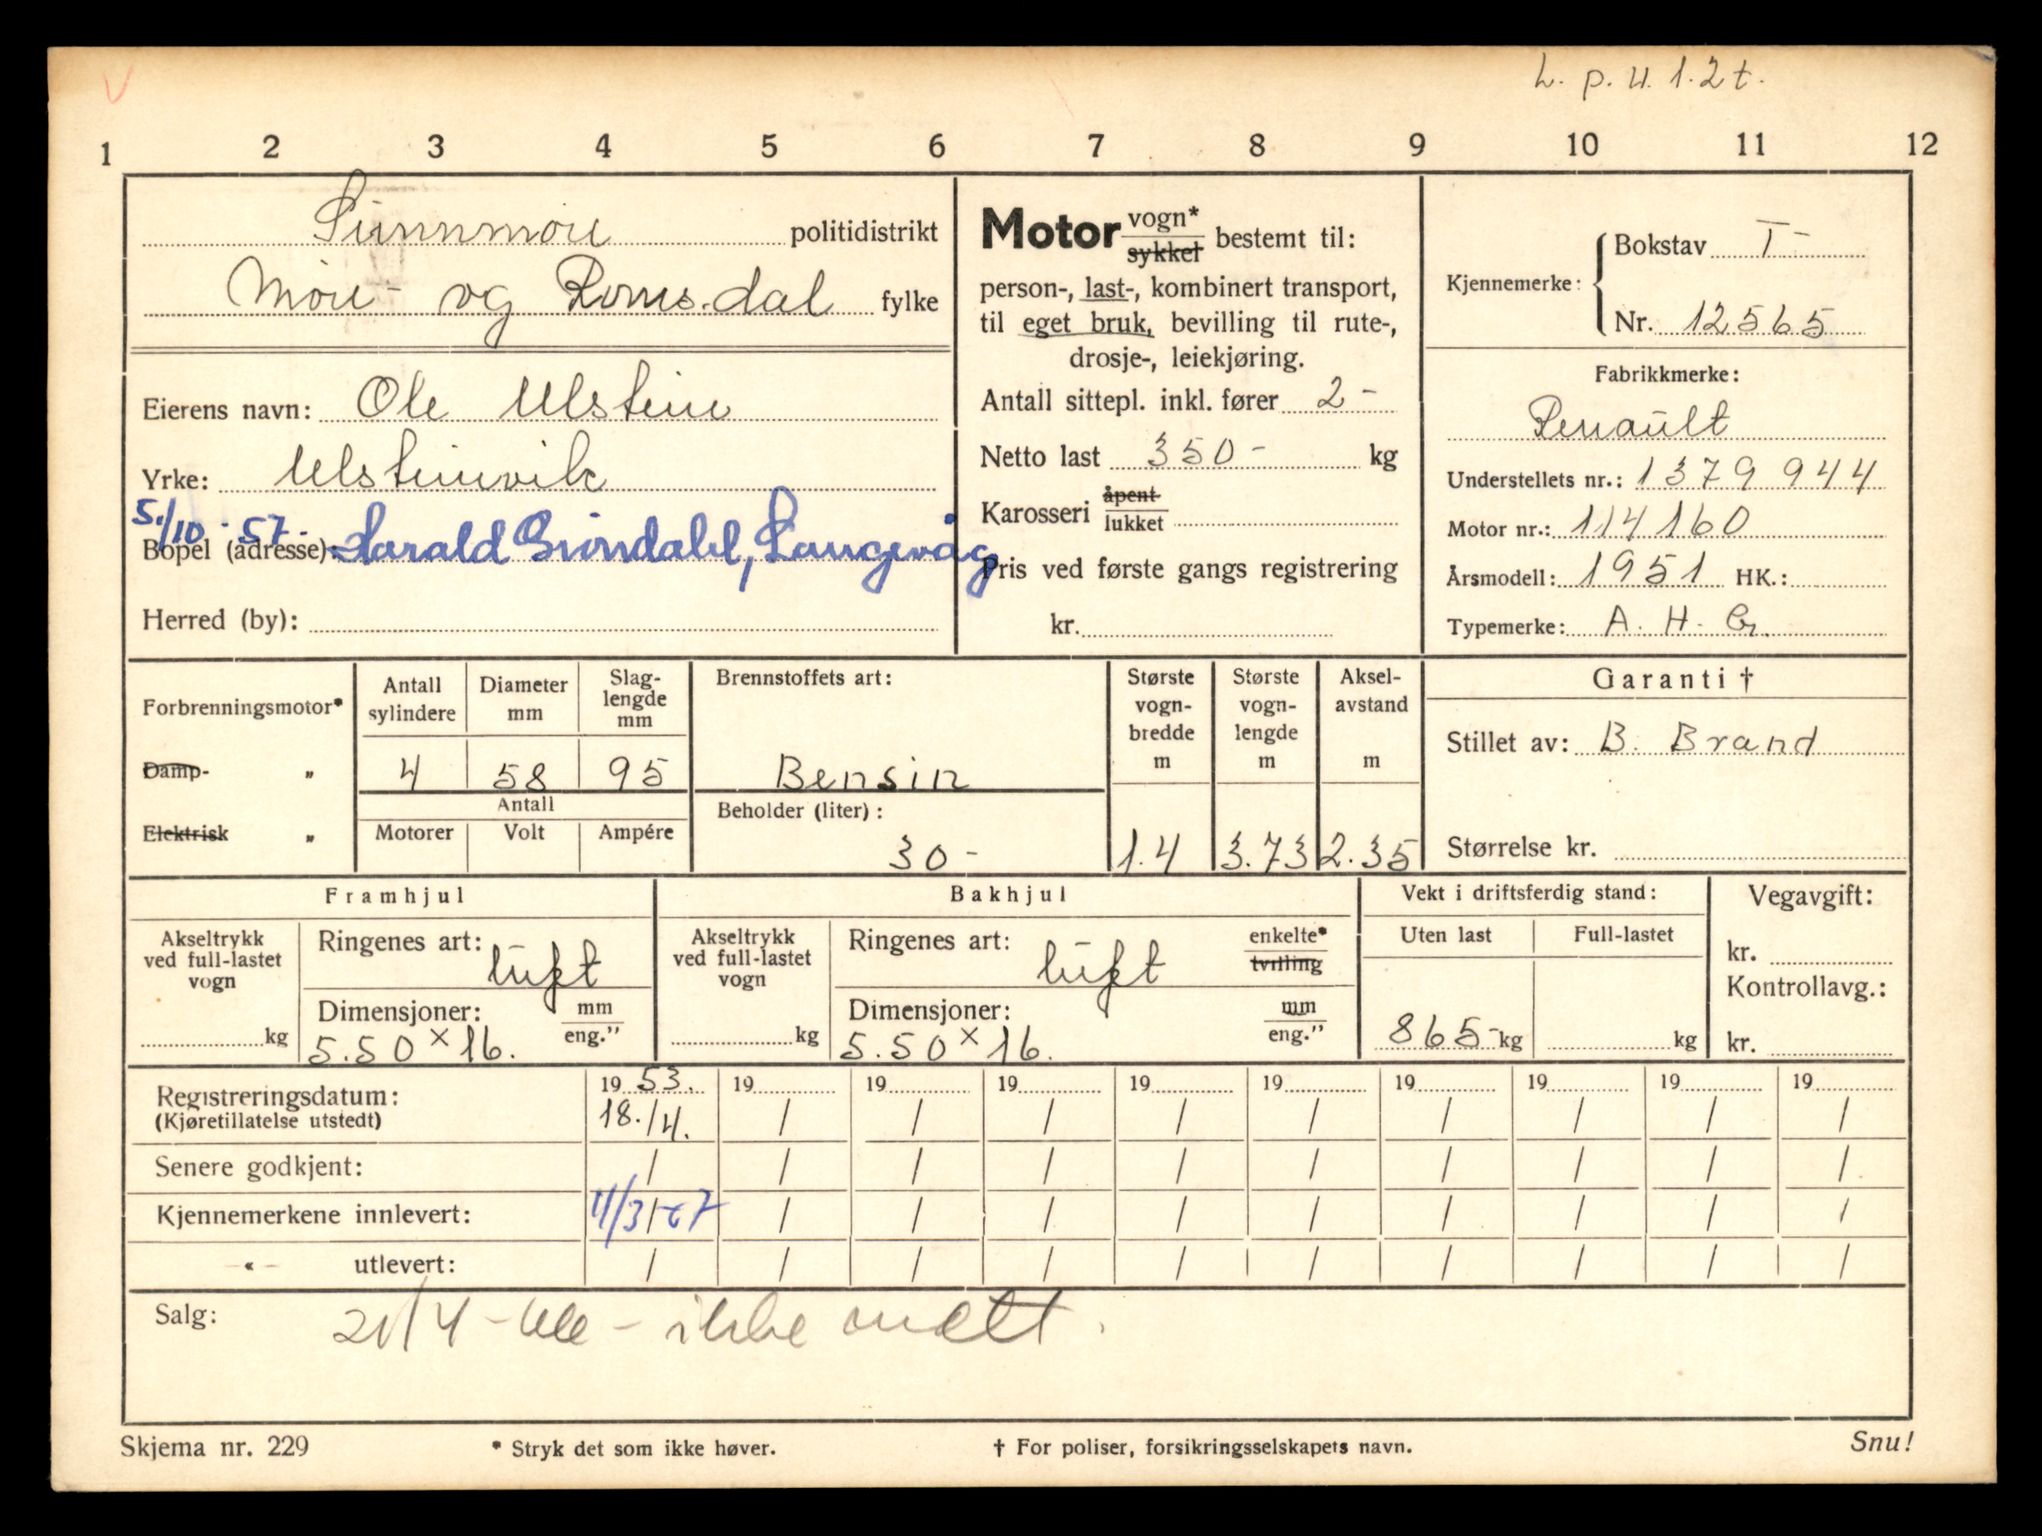 V
L. p. u. 1.2 t.
1 2 3 4 5 6 7 8 9 10 11 12
Sunnmøre politidistrikt
Møre- og Romsdal fylke
Eierens navn: Ole Ulstein
Yrke: Ulsteinvik
5./10 - 57 -
Bopel (adresse): Harald Grøndahl, Langevåg
Herred (by):
Motor vogn* / sykkel bestemt til:
person-, last-, kombinert transport,
til eget bruk, bevilling til rute-,
drosje-, leiekjøring.
Antall sittepl. inkl. fører 2 -
Netto last 350 - kg
Karosseri åpent / lukket
Pris ved første gangs registrering
kr.
Kjennemerke: Bokstav T -
Nr. 12565
Fabrikkmerke:
Renault
Understellets nr.: 1379944
Motor nr.: 114160
Årsmodell: 1951 HK.:
Typemerke: A. H. G.
Forbrenningsmotor*
Damp- "
Elektrisk "
Antall sylindere
Diameter mm
Slag-lengde mm
4 58 95
Antall
Motorer Volt Ampére
Brennstoffets art:
Bensin
Beholder (liter):
30 -
Største vogn-bredde m
1.4
Største vogn-lengde m
3.73
Aksel-avstand m
2.35
Garanti †
Stillet av: B. Brand
Størrelse kr.
Framhjul
Akseltrykk ved full-lastet vogn
kg
Ringenes art: luft
Dimensjoner: mm / eng."
5.50 x 16.
Bakhjul
Akseltrykk ved full-lastet vogn
kg
Ringenes art: luft enkelte* / tvilling
Dimensjoner: mm / eng."
5.50 x 16.
Vekt i driftsferdig stand:
Uten last Full-lastet
865- kg kg
Vegavgift:
kr.
Kontrollavg.:
kr.
Registreringsdatum: 19 53. 19 19 19 19 19 19 19 19 19
(Kjøretillatelse utstedt) 18./4. / / / / / / / / /
Senere godkjent: / / / / / / / / / /
Kjennemerkene innlevert: 4/3-67 / / / / / / / / /
-«- utlevert: / / / / / / / / / /
Salg: 21/4 - - ikke møtt.
Skjema nr. 229 * Stryk det som ikke høver. † For poliser, forsikringsselskapets navn. Snu!